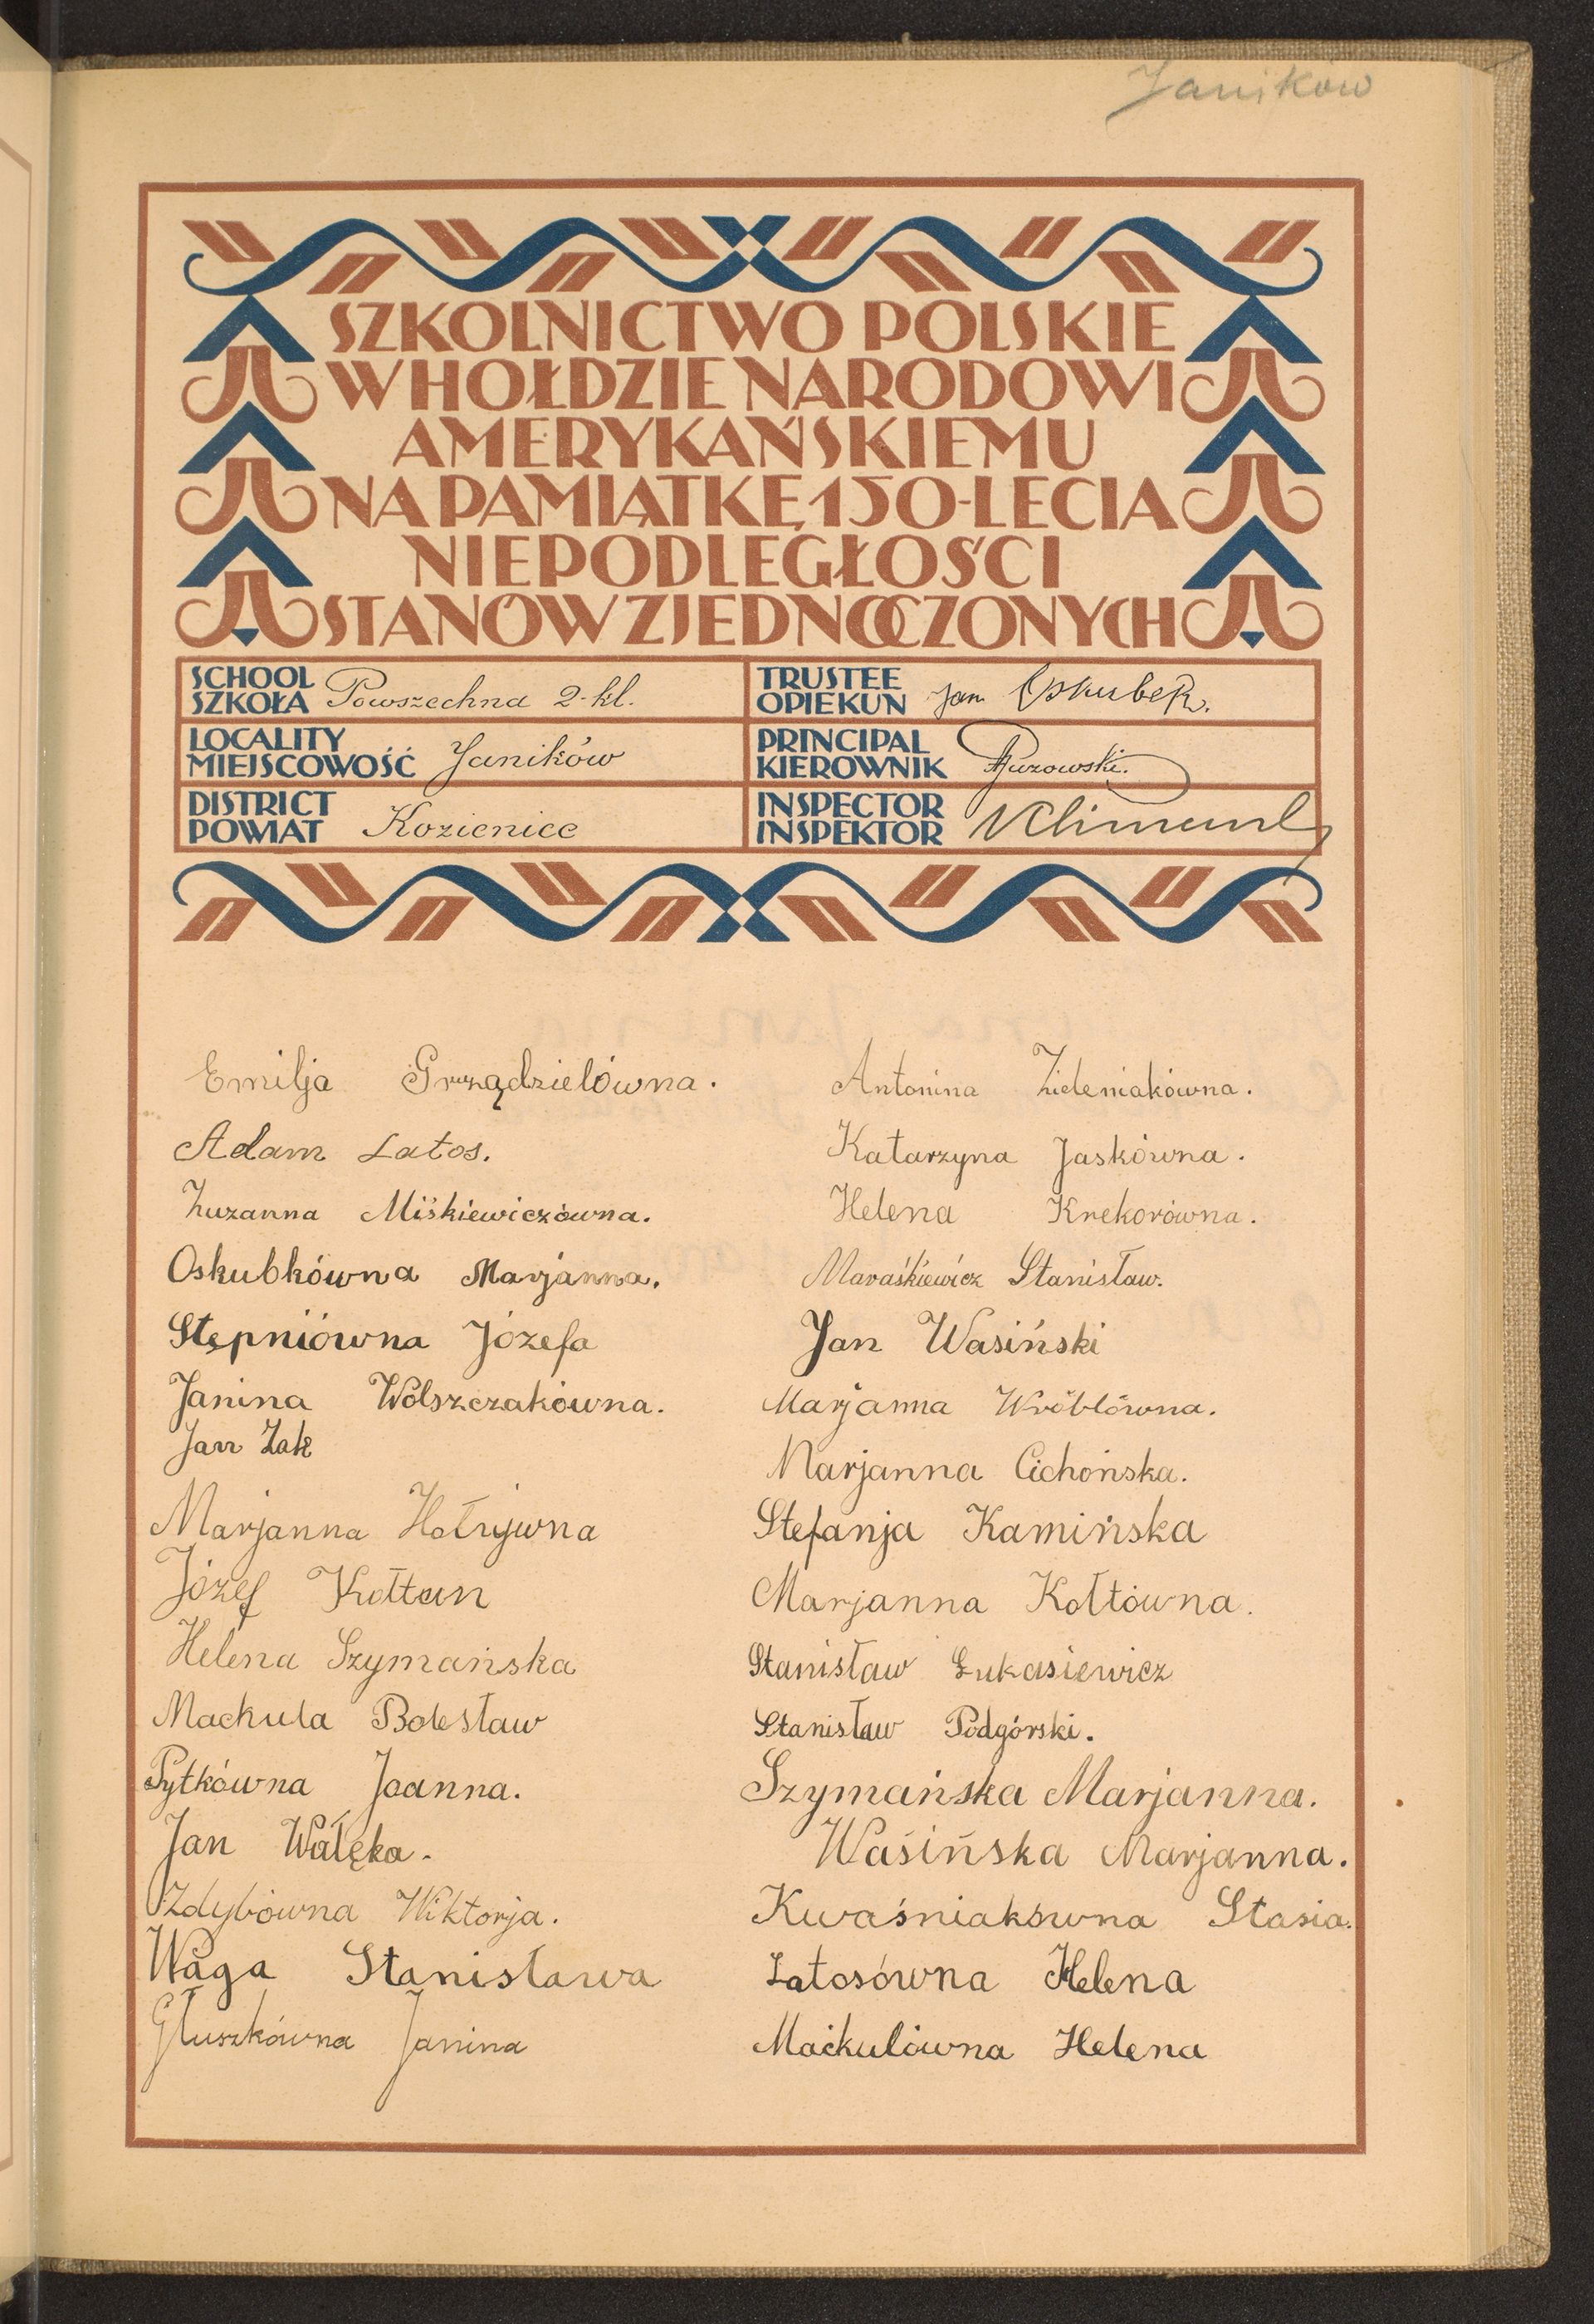 Janików
SZKOLNICTWO POLSKIE
W HOŁDZIE NARODOWI
AMERYKAŃSKIEMU
NA PAMIĄTKĘ 150-LECIA
NIEPODLEGŁOŚCI
STANÓW ZJEDNOCZONYCH
SCHOOL
SZKOŁA Powszechna 2-kl.
TRUSTEE
OPIEKUN Jan Oskubek.
LOCALITY
MIEJSCOWOŚĆ Janików
PRINCIPAL
KIEROWNIK
DISTRICT
POWIAT Kozienice
INSPECTOR
INSPEKTOR
Emilja Grzządzielówna.
Adam Latos.
Zuzanna Miśkiewiczówna.
Oskubkówna Marjanna.
Stępniówna Józefa
Janina Wólszczakówna.
Jan Żak
Marjanna
Józef Kołtun
Helena Szymańska
Maćkula Bolesław
Pytkówna Joanna.
Jan Wałęka.
Zdybówna Wiktorja.
Waga Stanisława
Głuszkówna Janina
Antonina Zieleniakówna.
Katarzyna Jaskówna.
Helena Krekorówna.
Maraśkiewicz Stanisław.
Jan Wasiński
Marjanna Wróblówna.
Marjanna Cichońska.
Stefanja Kamińska
Marjanna Kołtówna.
Stanisław Łukasiewicz
Stanisław Podgórski.
Szymańska Marjanna.
Waśińska Marjanna.
Kwaśniakówna Stasia.
Latosówna Helena
Maćkulówna Helena